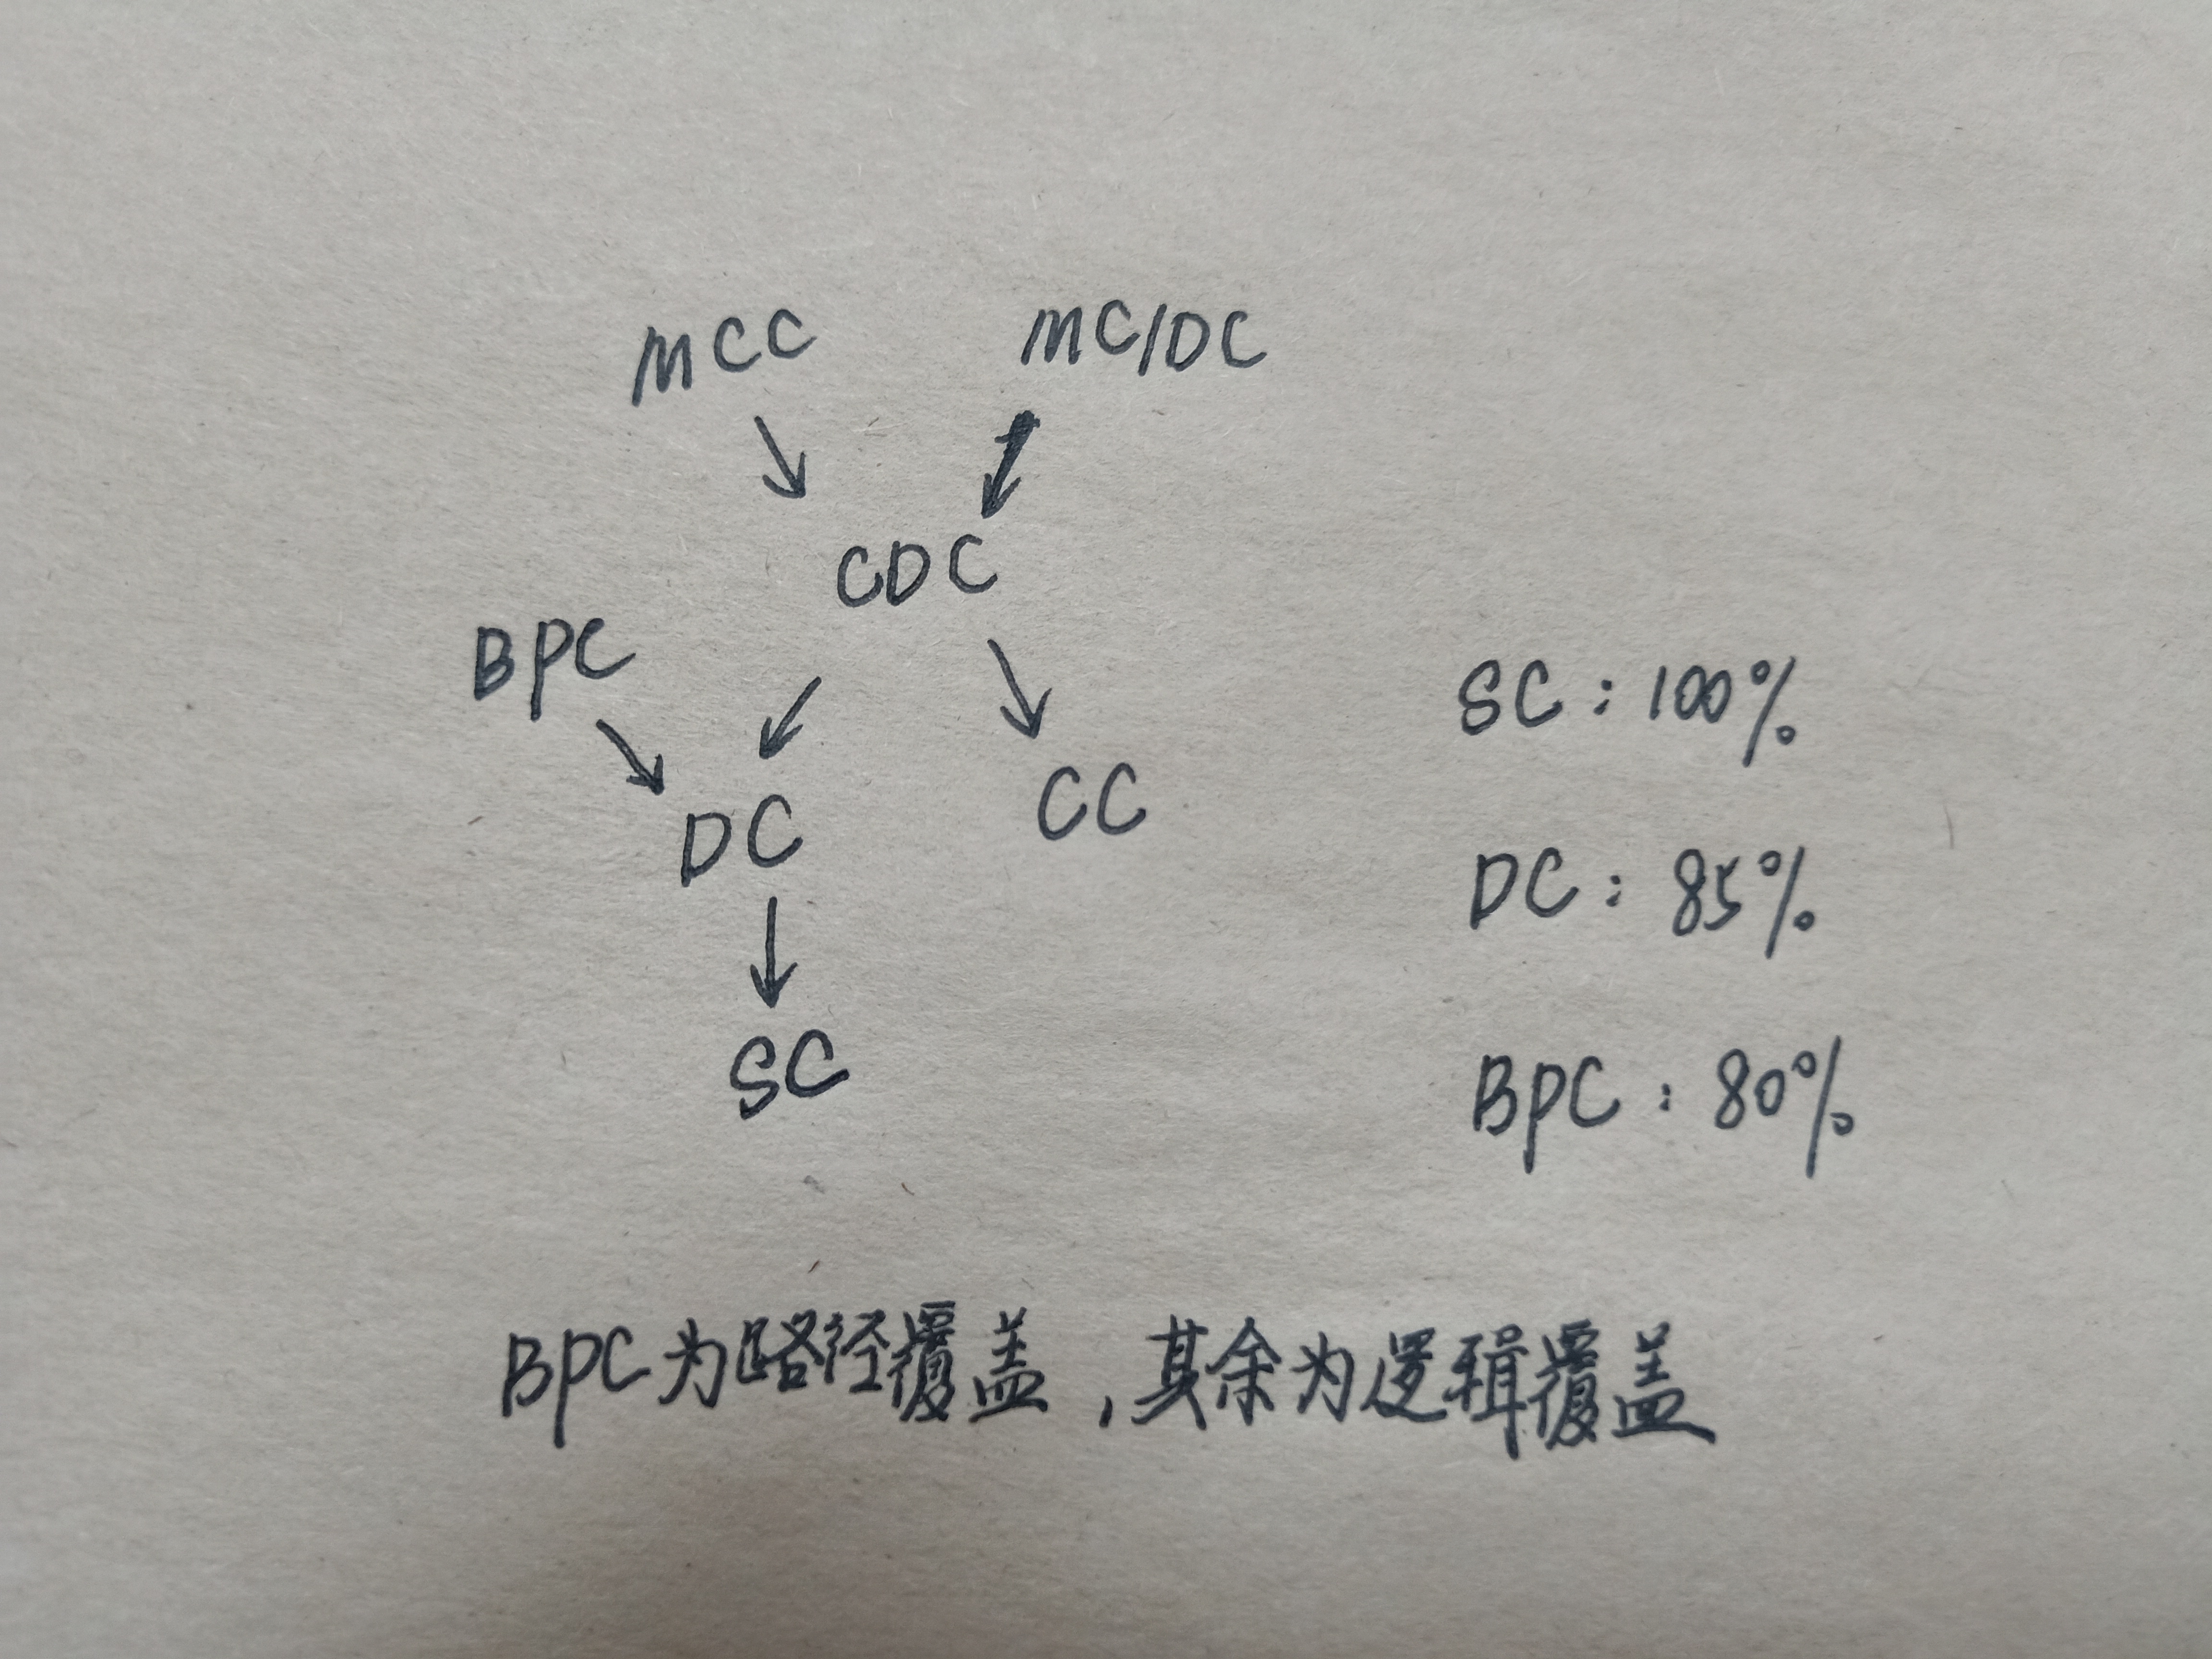 MCC MC/DC
CDC
BPC
SC: 100%
CC
DC
DC: 85%
SC
BPC: 80%
BPC为路径覆盖,其余为逻辑覆盖